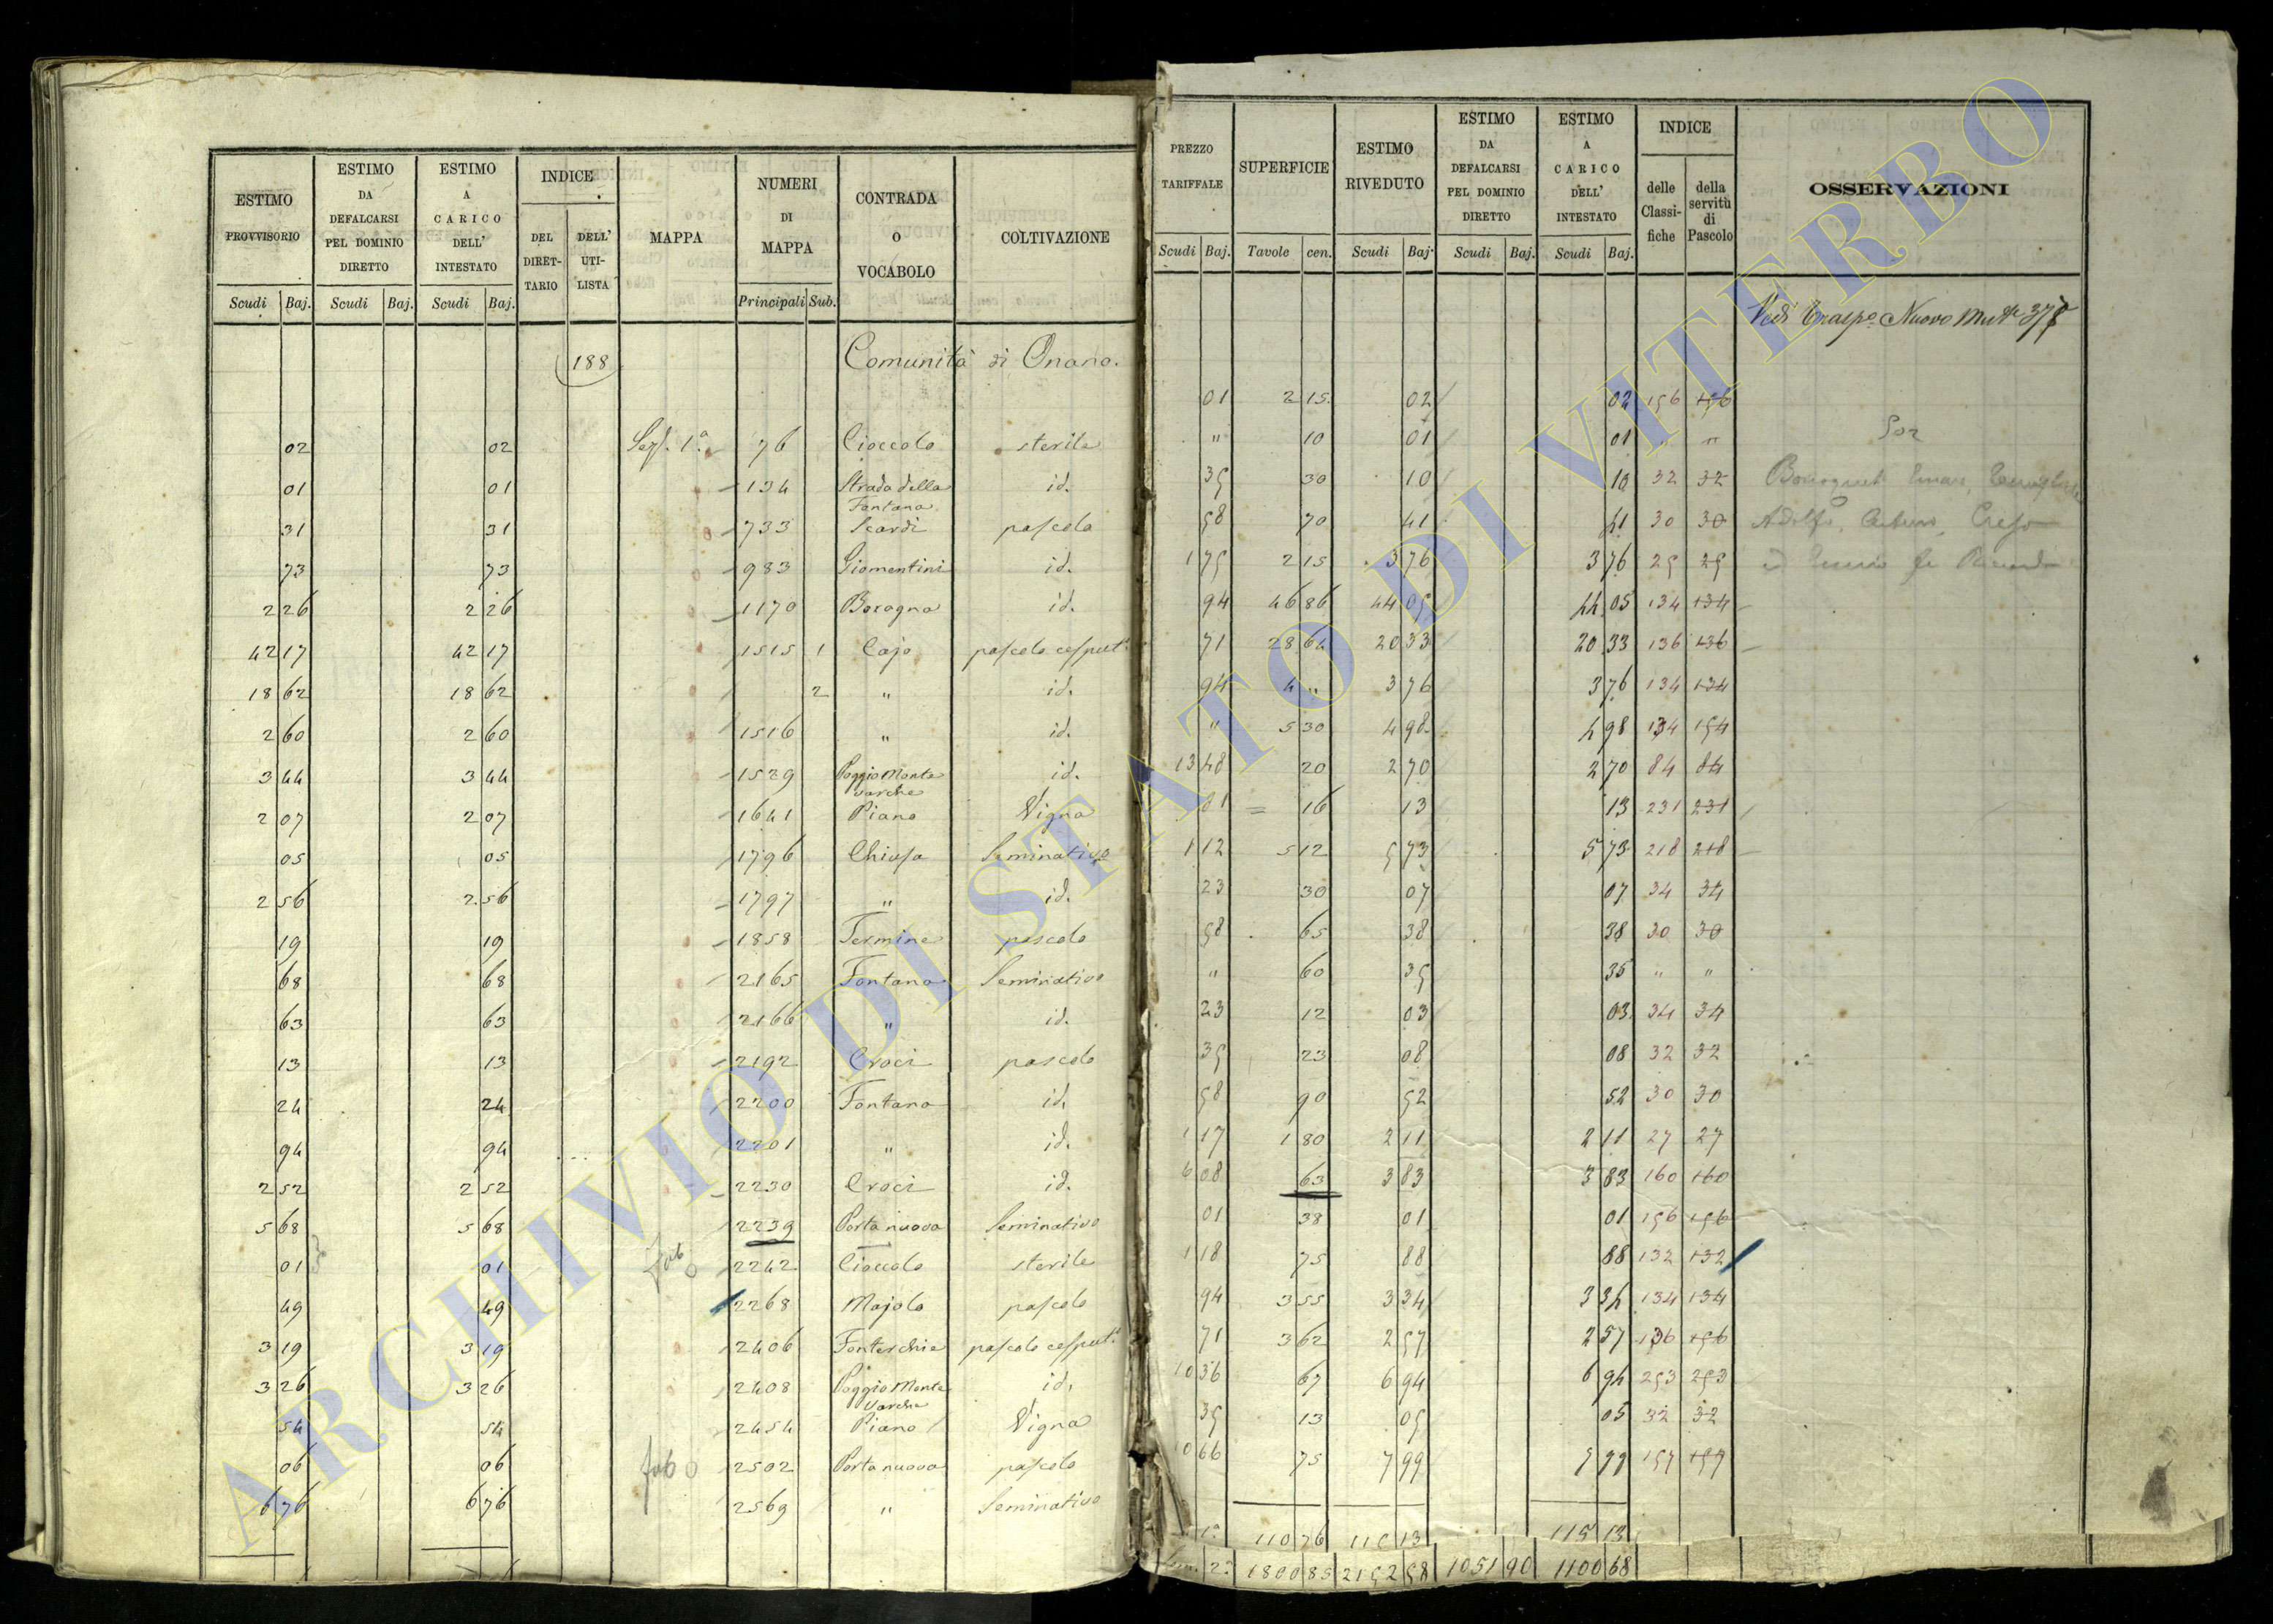 ESTIMO PROVVISORIO | ESTIMO DA DEFALCARSI PEL DOMINIO DIRETTO | ESTIMO A CARICO DELL' INTESTATO | INDICE DEL DIRETTARIO | INDICE DELL' UTILISTA | MAPPA | NUMERI DI MAPPA | CONTRADA O VOCABOLO | COLTIVAZIONE
Scudi Baj. | Scudi Baj. | Scudi Baj. | Principali Sub.
188 Comunità di Onano.
02 | 02 | Sez. 1ª | 76 | Cioccolo | sterile
01 | 01 | 134 | Strada della Fontana | id.
31 | 31 | 733 | Scardi | pascolo
73 | 73 | 983 | Giomentini | id.
2 26 | 2 26 | 1170 | Boragna | id.
42 17 | 42 17 | 1515 | 1 | Cajo | pascolo cesput.
18 62 | 18 62 | 2 | " | id.
2 60 | 2 60 | 1516 | " | id.
3 44 | 3 44 | 1529 | Poggio Monte varche | id.
2 07 | 2 07 | 1641 | Piano | Vigna
05 | 05 | 1796 | Chiusa | Seminativo
2 56 | 2 56 | 1797 | " | id.
19 | 19 | 1858 | Termine | pascolo
68 | 68 | 2165 | Fontana | Seminativo
63 | 63 | 2166 | " | id.
13 | 13 | 2192 | Croci | pascolo
24 | 24 | 2200 | Fontana | id.
94 | 94 | 2201 | " | id.
2 52 | 2 52 | 2230 | Croci | id.
5 68 | 5 68 | 2239 | Porta nuova | Seminativo
01 | 01 | fab | 2242 | Cioccolo | sterile
49 | 49 | 2268 | Majolo | pascolo
3 19 | 3 19 | 2406 | Fonterchie | pascolo cesput.
3 26 | 3 26 | 2408 | Poggio Monte varche | id.
54 | 54 | 2454 | Piano | Vigna
06 | 06 | fab | 2502 | Porta nuova | pascolo
6 76 | 6 76 | 2569 | " | Seminativo
PREZZO TARIFFALE | SUPERFICIE | ESTIMO RIVEDUTO | ESTIMO DA DEFALCARSI PEL DOMINIO DIRETTO | ESTIMO A CARICO DELL' INTESTATO | INDICE delle Classifiche | della servitù di Pascolo | OSSERVAZIONI
Scudi Baj. | Tavole cen. | Scudi Baj. | Scudi Baj. | Scudi Baj.
Vedi Nuovo
01 | 2 15 | 02 | 02 | 156 | 156
" | 10 | 01 | 01 | " | "
35 | 30 | 10 | 10 | 32 | 32
58 | 70 | 41 | 41 | 30 | 30 | Adolfo
1 75 | 2 15 | 3 76 | 3 76 | 25 | 25
94 | 46 86 | 44 05 | 44 05 | 134 | 134
71 | 28 64 | 20 33 | 20 33 | 136 | 136
94 | 4 " | 3 76 | 3 76 | 134 | 134
" | 5 30 | 4 98 | 4 98 | 134 | 154
13 48 | 20 | 2 70 | 2 70 | 84 | 84
= 16 | 13 | 13 | 231 | 231
1 12 | 5 12 | 5 73 | 5 73 | 218 | 218
23 | 30 | 07 | 07 | 34 | 34
58 | 65 | 38 | 38 | 30 | 30
" | 60 | 35 | 35 | " | "
23 | 12 | 03 | 03 | 34 | 34
35 | 23 | 08 | 08 | 32 | 32
58 | 90 | 52 | 52 | 30 | 30
1 17 | 1 80 | 2 11 | 2 11 | 27 | 27
6 08 | 63 | 3 83 | 3 83 | 160 | 160
01 | 38 | 01 | 01 | 156 | 156
1 18 | 75 | 88 | 88 | 132 | 132
94 | 3 55 | 3 34 | 3 34 | 134 | 134
71 | 3 62 | 2 57 | 2 57 | 136 | 156
10 36 | 67 | 6 94 | 6 94 | 253 | 253
35 | 13 | 05 | 05 | 32 | 32
10 66 | 75 | 7 99 | 7 99 | 157 | 157
1ª | 110 76 | 115 13 | 115 13
2ª | 1800 85 | 2152 58 | 1051 90 | 1100 68
ARCHIVIO DI STATO DI VITERBO